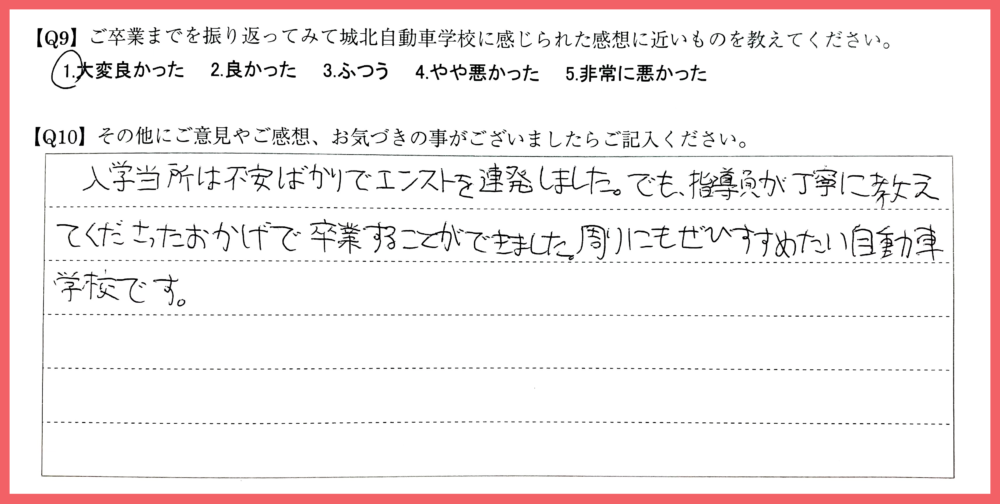 【Q9】ご卒業までを振り返ってみて城北自動車学校に感じられた感想に近いものを教えてください。
1.大変良かった 2.良かった 3.ふつう 4.やや悪かった 5.非常に悪かった
【Q10】その他にご意見やご感想、お気づきの事がございましたらご記入ください。
入学当所は不安ばかりでエンストを連発しました。でも、指導員が丁寧に教え
てくださったおかげで卒業することができました。周りにもぜひすすめたい自動車
学校です。